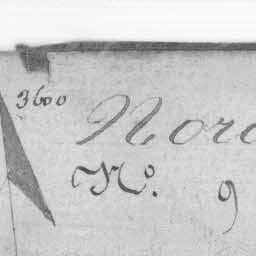 3600
Nord
No. 9